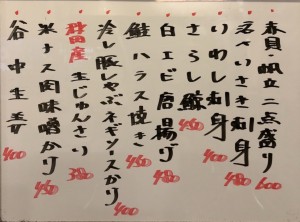 赤貝・帆立二点盛り 600
石えいさき刺身 480
いわし刺身 400
さらし鯨 450
白エビ唐揚げ 480
鮭ハラス焼き 450
冷し豚しゃぶネギソースかけ 400
秋田産生じゅんさい 380
米ナス肉味噌かけ 450
谷中生姜 400